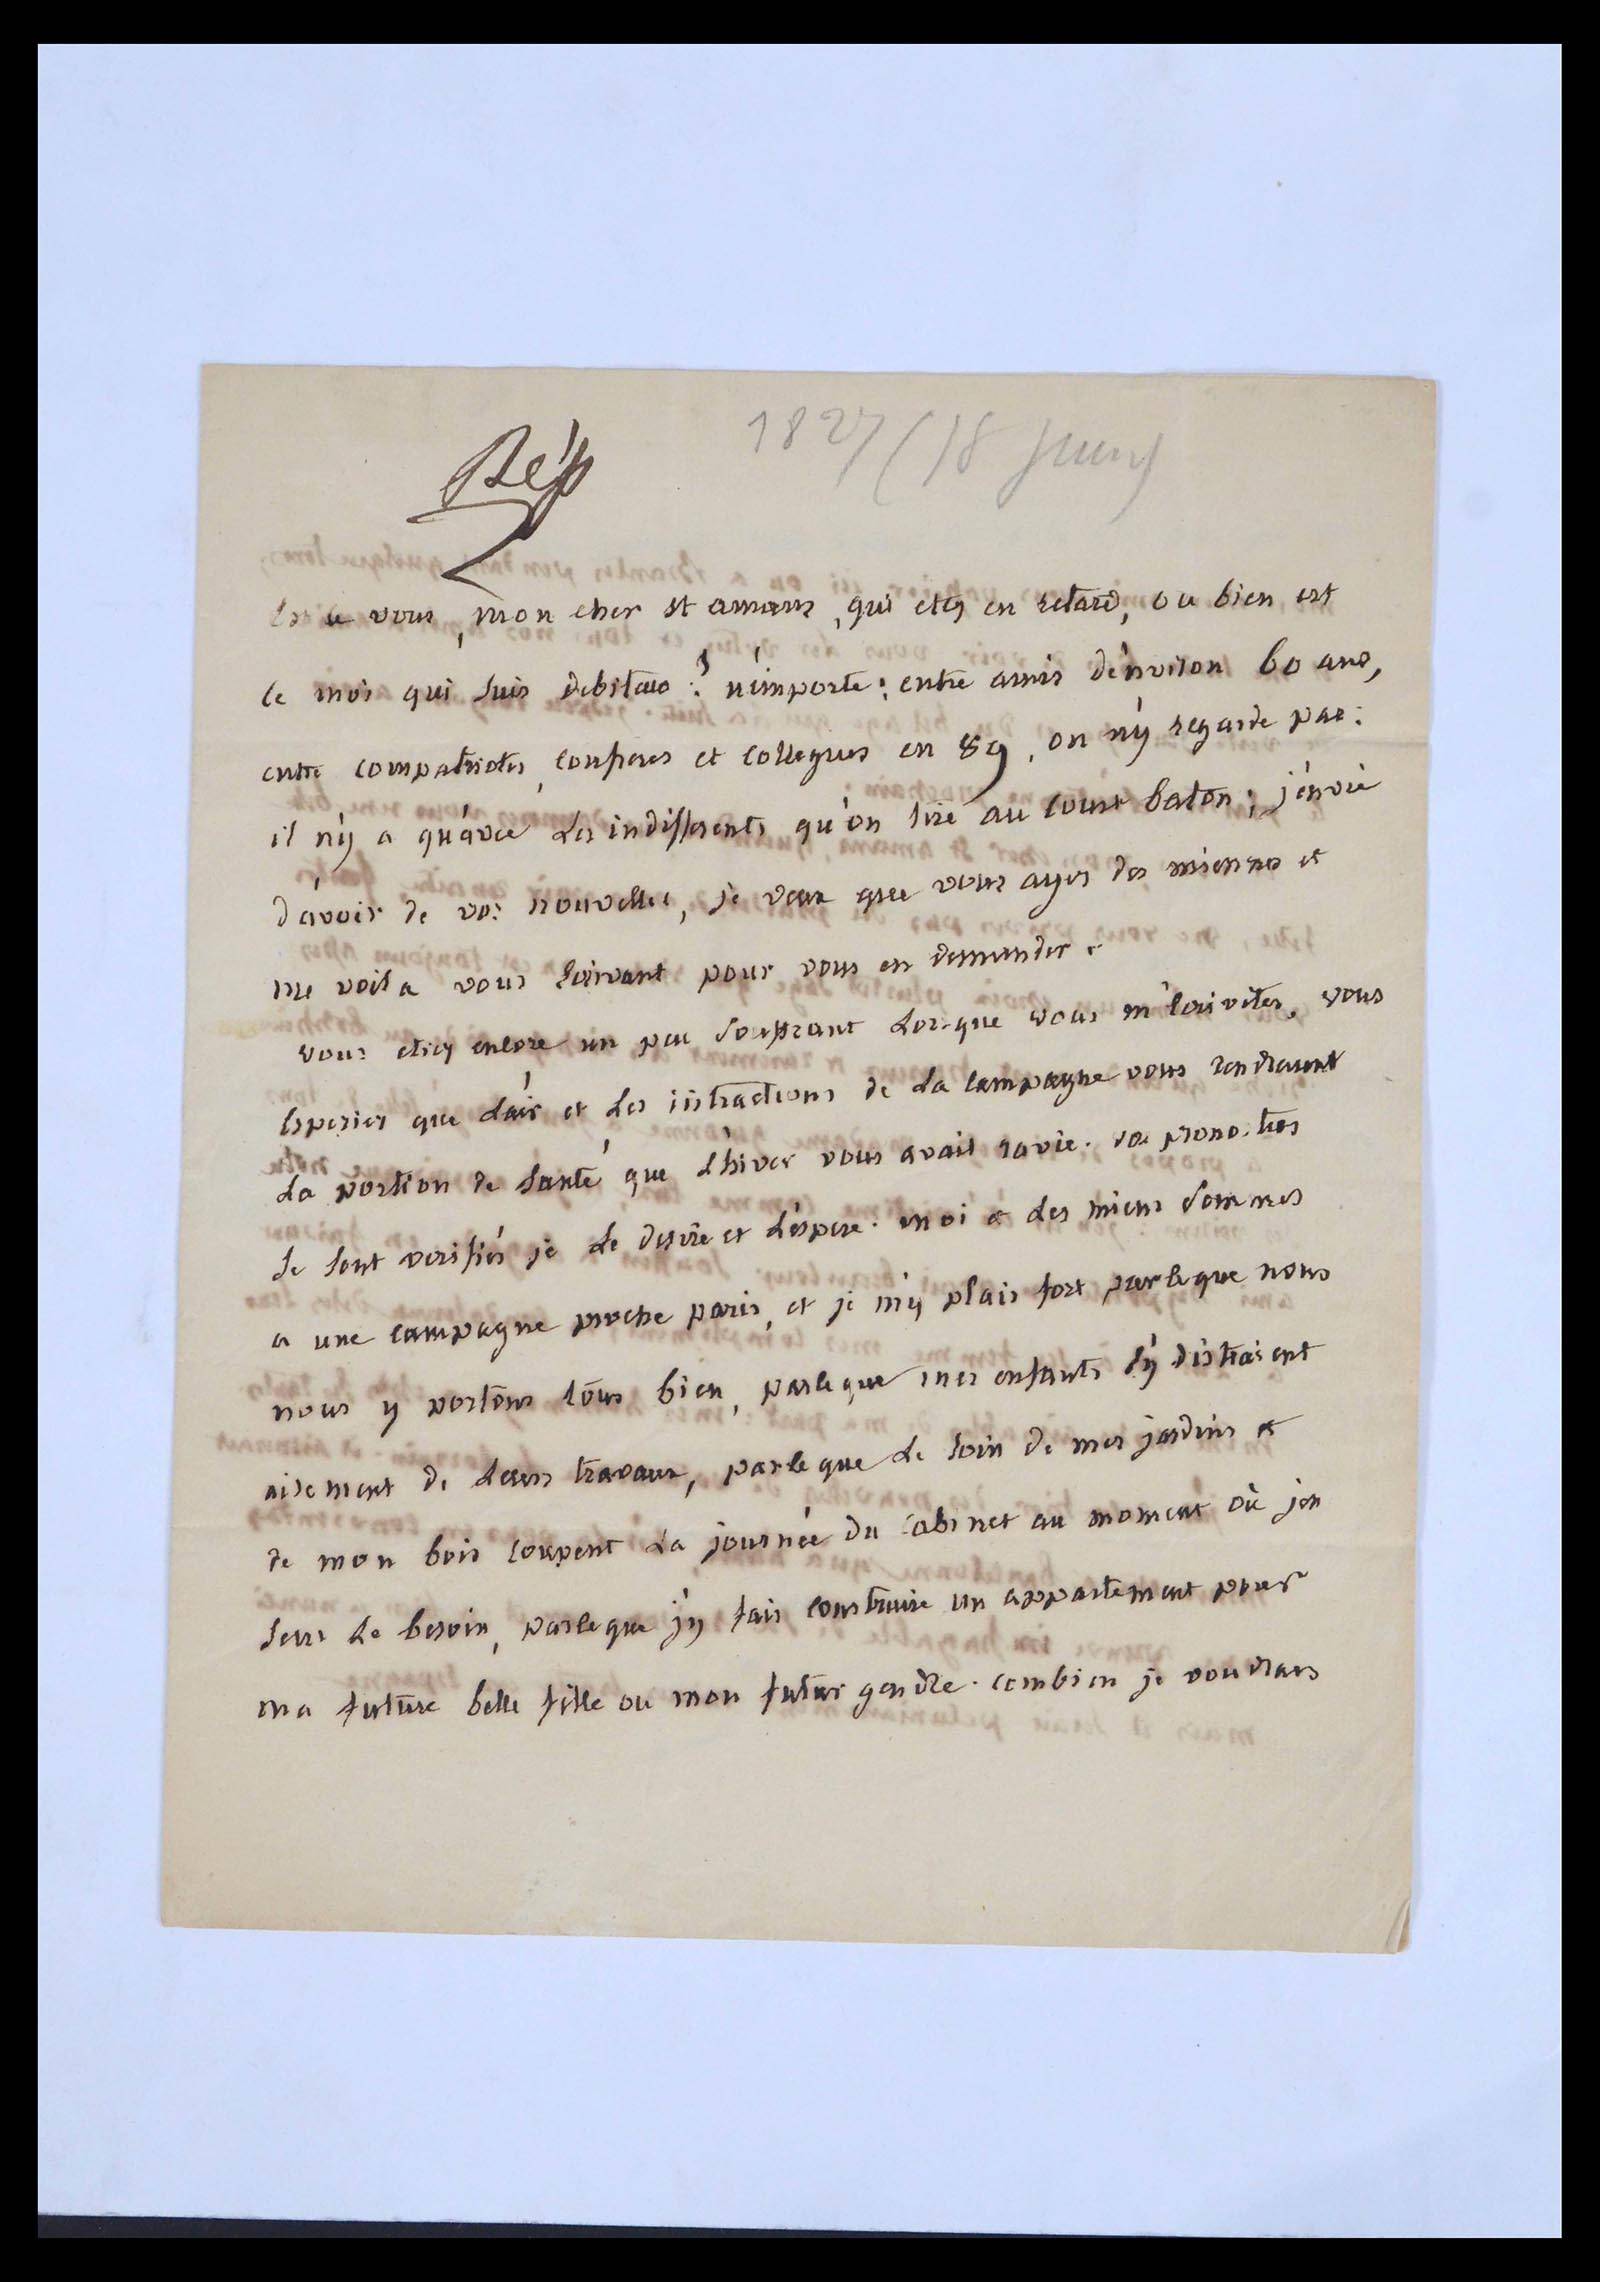 1827 (18 juin)
Rép
Est ce vous, mon cher st amans, qui etes en retard, ou bien est
ce moi qui suis debiteur? n'importe: entre amis d'environ 60 ans,
entre compatriotes, confreres et collegues en 89, on n'y regarde pas:
il n'y a qu'avec les indifferents qu'on tire au court baton; j'envie
d'avoir de vos nouvelles, je veux que vous ayes des miennes et
me voila vous ecrivant pour vous en demander.
vous eties encore un peu souffrant lorsque vous m'ecrivites. vous
esperies que l'air et les distractions de la campagne vous rendraient
la portion de santé que l'hiver vous avait ravie. vos pronostics
se sont verifiés je le desire et l'espere. moi et les miens sommes
a une campagne proche paris, et je m'y plais fort parceque nous
nous y portons tous bien, parceque mes enfants s'y distraisent
aisement de leurs travaux, parceque le soin de mes jardins et
de mon bois coupent la journée du cabinet au moment où j'en
sens le besoin, parceque j'y fais construire un appartement pour
ma future belle fille ou mon futur gendre. combien je voudrais